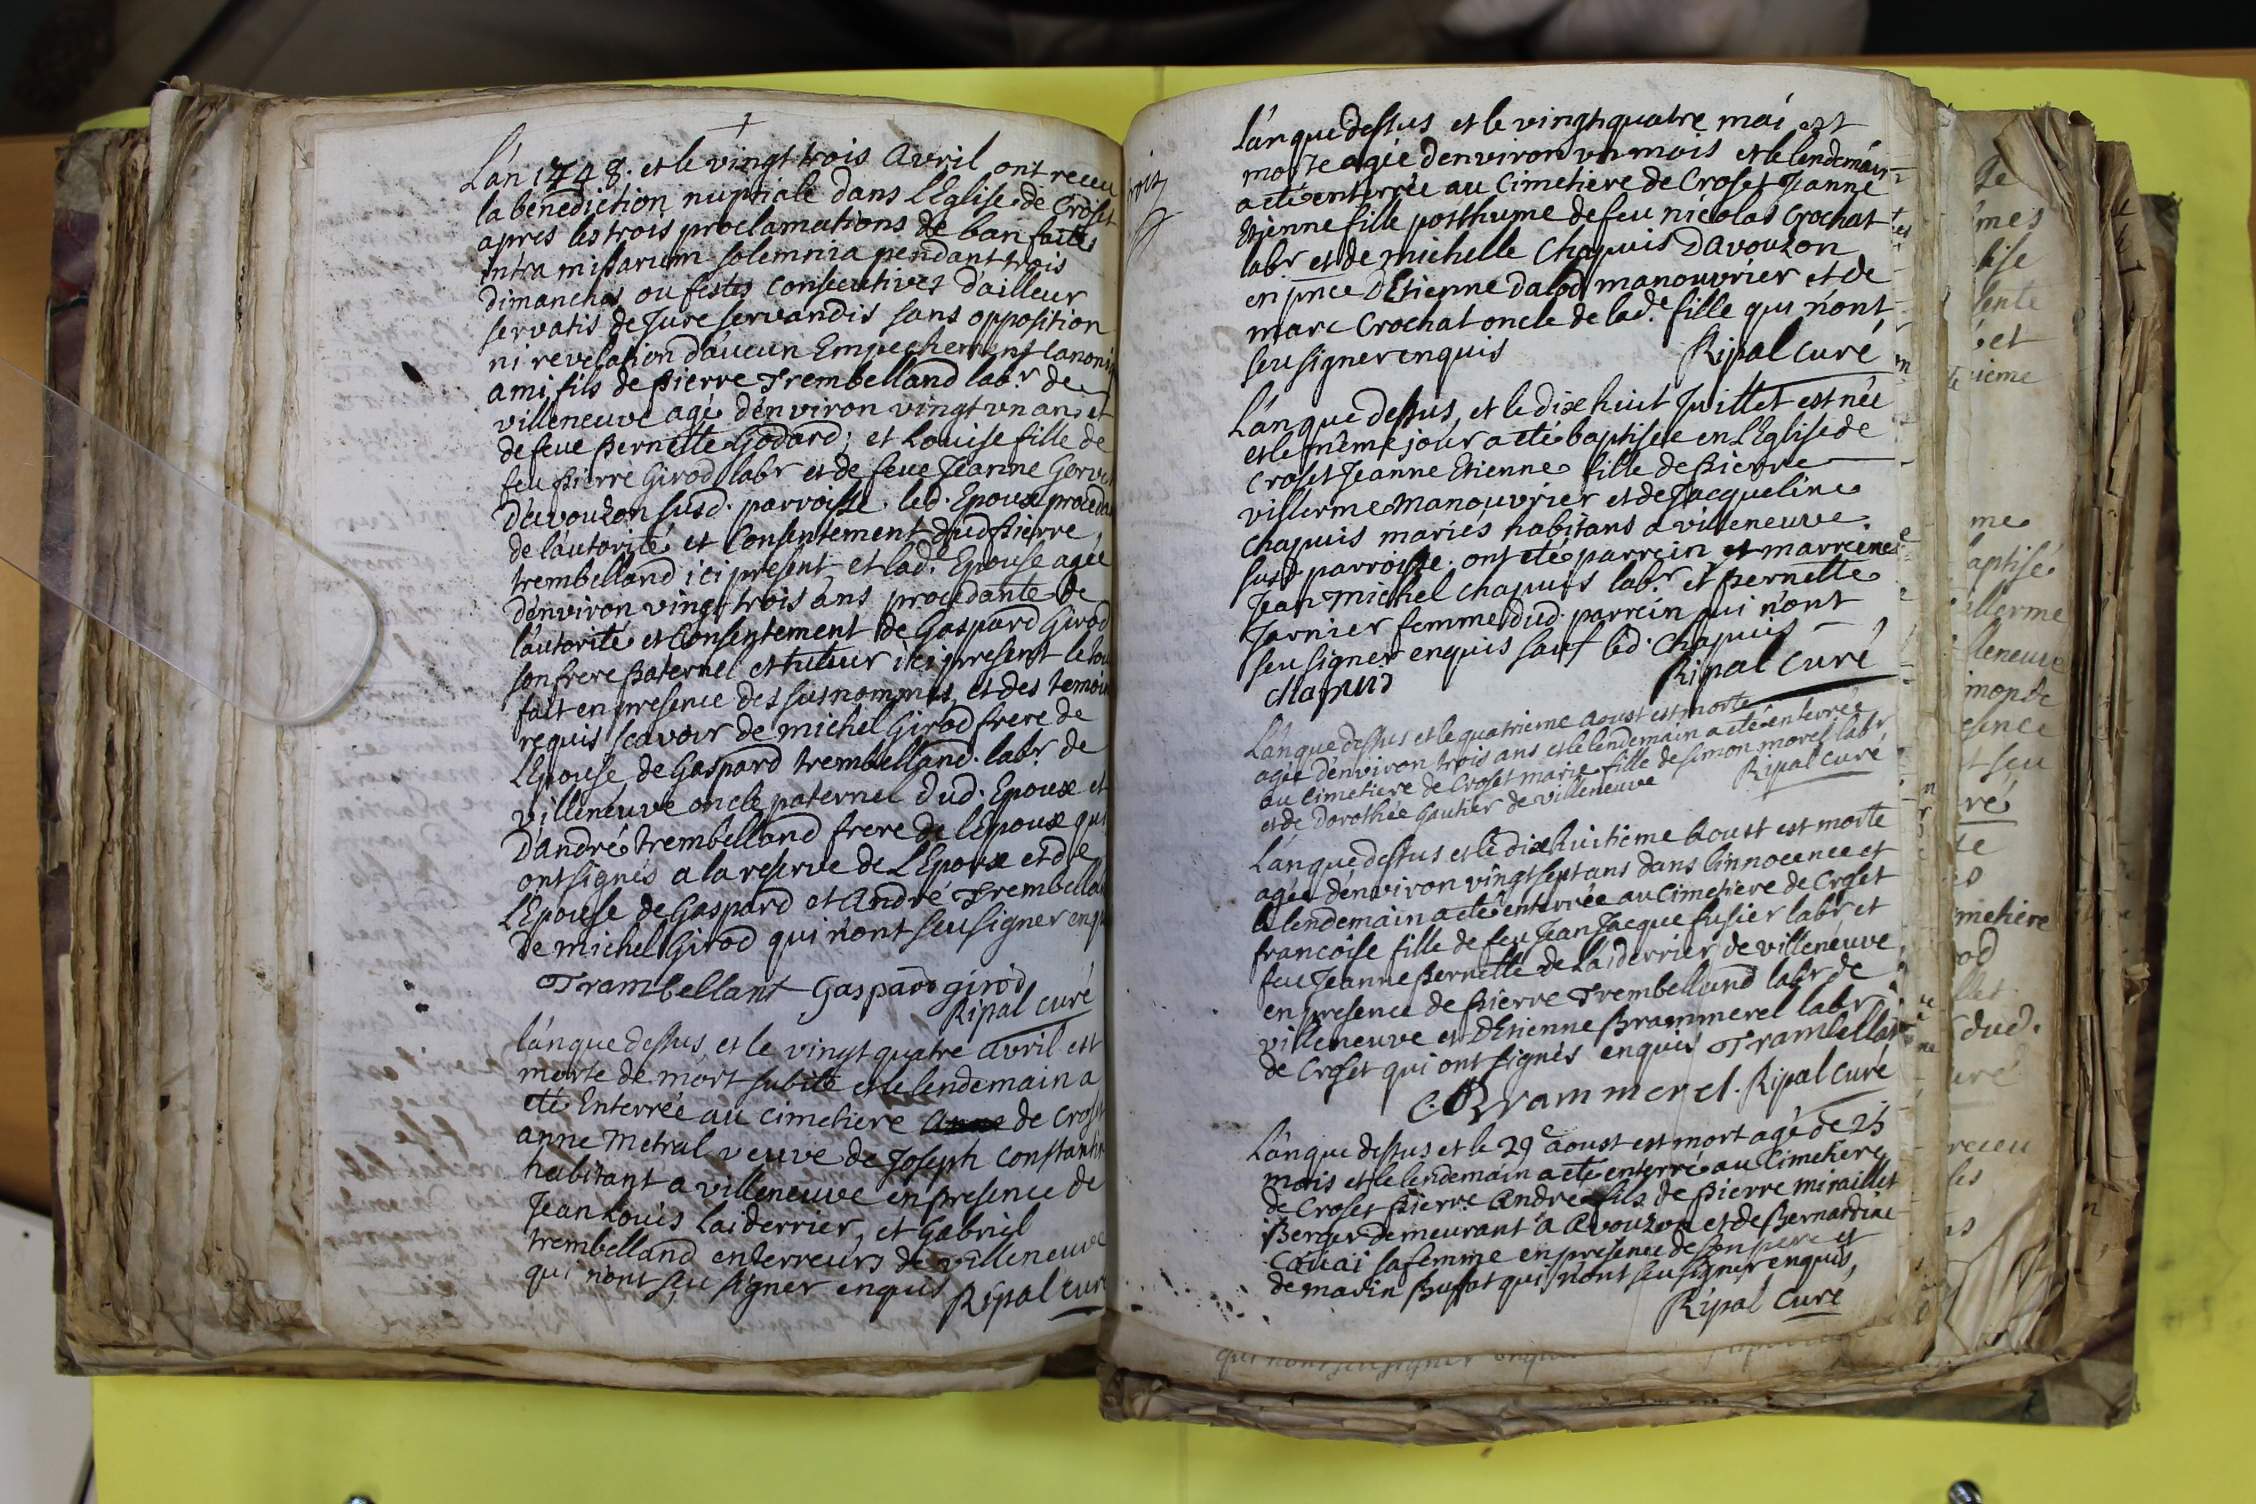 L'an 1748. et le vingt trois avril ont receu
la benediction nuptiale dans l'Eglise de Croset
apres les trois proclamations de ban faites
intra missarum solemnia pendant trois
dimanches ou festes consecutives d'ailleur
servatis de Jure servandis sans opposition
ni revelation d'aucun Empechement canoni
ami fils de pierre Trembelland labr. de
villeneuve agé d'environ vingt vn ans et
de feue pernette Godard; et Louise fille de
feu pierre Girod labr et de feue Jeanne
d'avouzon susd. parroisse. led. Epoux proceda
de l'autorité et Consentement dud pierre
trembelland ici present et lad. Epouse agée
d'environ vingt trois ans procedante de
l'autorité et Consentement de Gaspard Girod
son frere paternel et tuteur ici present le tou
fait en presence des susnommés et des temoin
requis scavoir de michel Girod frere de
l'Epouse de Gaspard trembelland. labr. de
villeneuve oncle paternel dud. Epoux et
d'andré trembelland frere de l'Epoux qui
ont signés a la reserve de L'Epoux et de
l'Epouse de Gaspard et andré Trembella
de michel Girod qui n'ont seu signer enq
Trambellant Gaspard girod
Ripal curé
l'an que dessus et le vingt quatre avril est
morte de mort subite et le lendemain a
eté Enterrée au cimetiere de Croset
anne metral veuve de Joseph constantin
habitant a villeneuve en presence de
Jean Louis Laiderrier, et Gabriel
trembelland enterreurs de villeneuve
qui n'ont seu signer enquis Ripal curé
l'an que dessus et le vingt quatre mai est
morte agée d'environ vn mois et le lendemain
a eté enterrée au Cimetiere de Croset Jeanne
Etienne fille posthume de feu nicolas Crochat
labr et de michelle Chapuis d'avouzon
en pnce d'Etienne dalod manouvrier et de
marc Crochat oncle de lad.e fille qui n'ont
seu signer enquis Ripal curé
L'an que dessus, et le dix huit Juillet est née
et le même jour a eté baptisée en l'Eglise de
Croset Jeanne Etienne fille de pierre
villerme manouvrier et de Jacqueline
chapuis mariés habitans a villeneuve
susd. parroisse. ont eté parrein et marreine
Jean michel chapuis labr et pernette
Jarnier femme dud. parrein qui n'ont
seu signer enquis sauf led. Chapuis
chapuis Ripal curé
L'an que dessus et le quatrieme aoust est morte
agée d'environ trois ans et le lendemain a eté enterrée
au cimetiere de Croset marie fille de simon morel labr
et de Dorothée Gautier de villeneuve Ripal curé
L'an que dessus et le dix huitieme Aoust est morte
agée d'environ vingt sept ans dans l'innocence et
le lendemain a eté enterrée au Cimetiere de Croset
francoise fille de feu Jean Jacque fusier labr et
feu Jeanne pernette de Laiderrier de villeneuve
en presence de pierre Trembelland labr de
villeneuve et d'Etienne Brammerel labr
de Croset qui ont signés enquis Trambellan
E. Brammerel. Ripal curé
L'an que dessus et le 29e aoust est mort agé de 25
mois et le lendemain a eté enterré au Cimetiere
de Croset pierre andré fils de pierre miraillet
Berger demeurant a avouzon et de Bernardine
Couai sa femme en presence de son pere et
de marin Buffat qui n'ont seu signer enquis,
Ripal curé